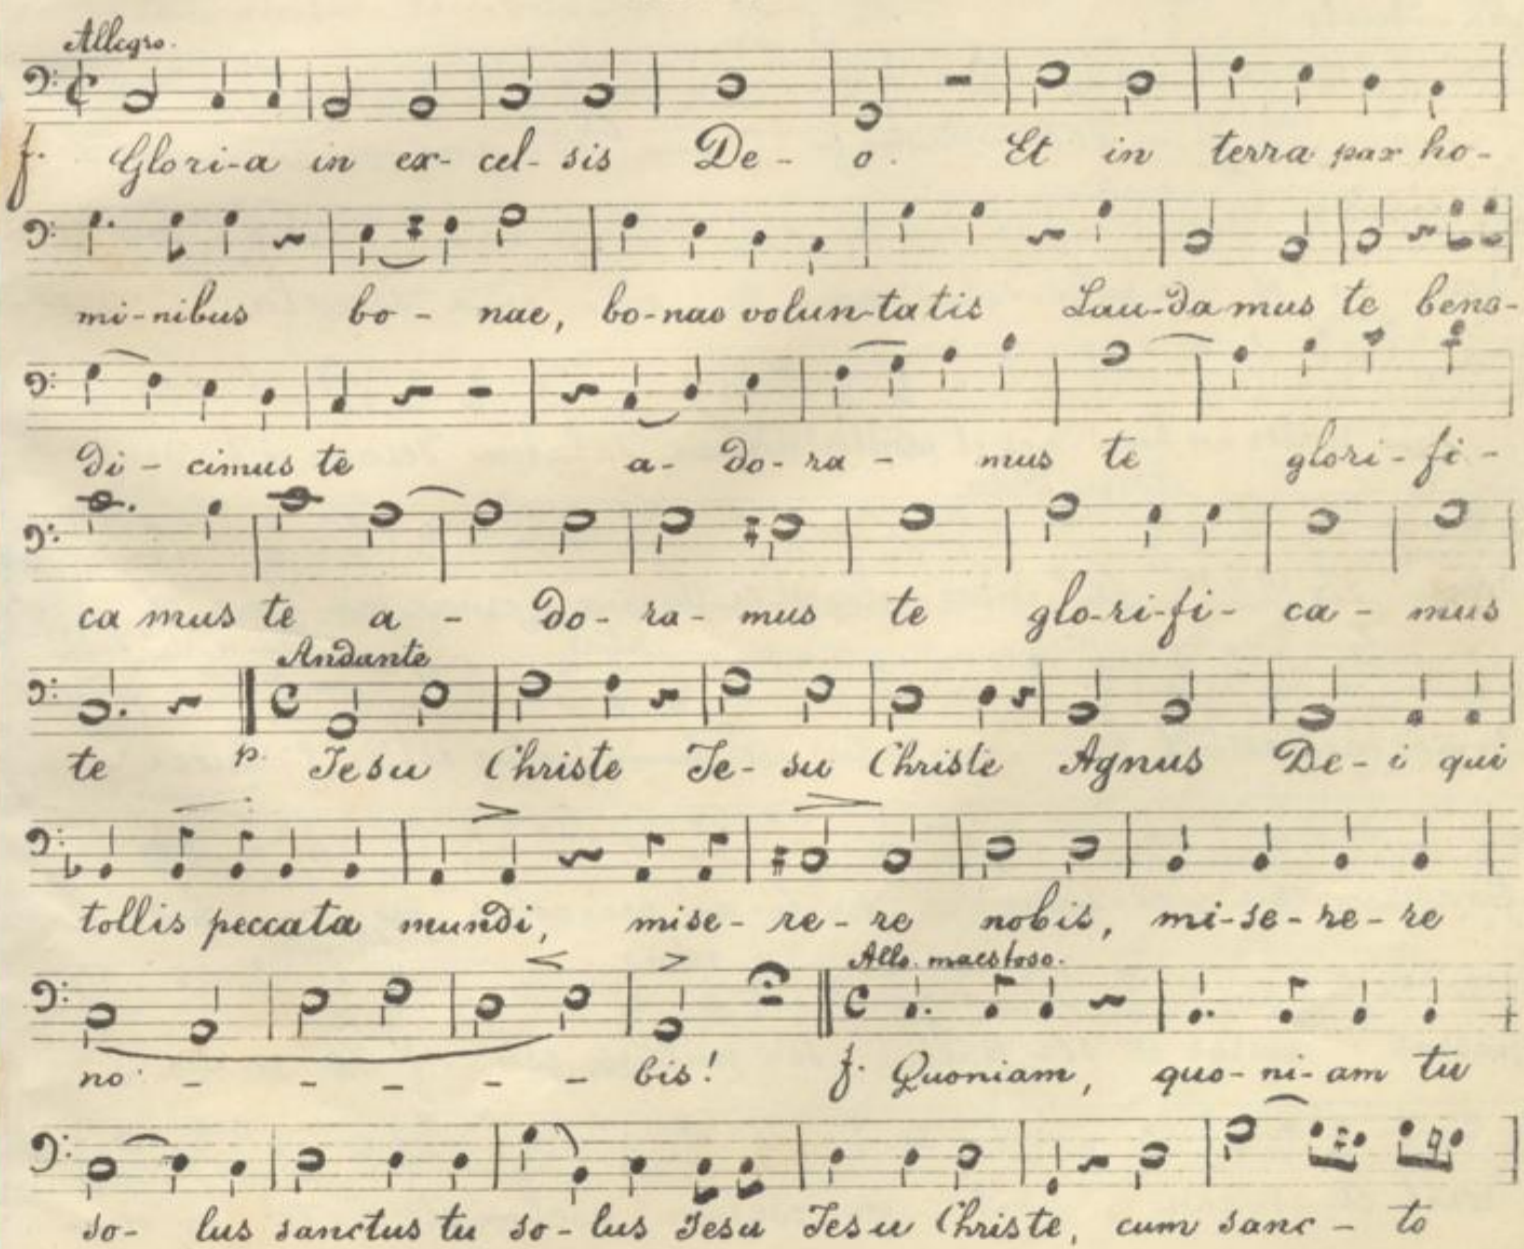 Allegro.
f. Glori-a in ex- cel- sis De - o. Et in terra pax ho-
mi-nibus bo - nae, bo-nae volun-ta tis Lau-da mus te bene-
di - cimus te a- do- ra - mus te glori- fi -
ca mus te a - do- ra- mus te glo-ri-fi- ca - mus
Andante
te p. Jesu Christe Je- su Christe Agnus De - i qui
tollis peccata mundi, mise- re - re nobis, mi-se-re-re
Allo. maestoso.
no - - - - - bis! f. Quoniam, quo- ni- am tu
so- lus sanctus tu so-lus Jesu Jesu Christe, cum sanc - to